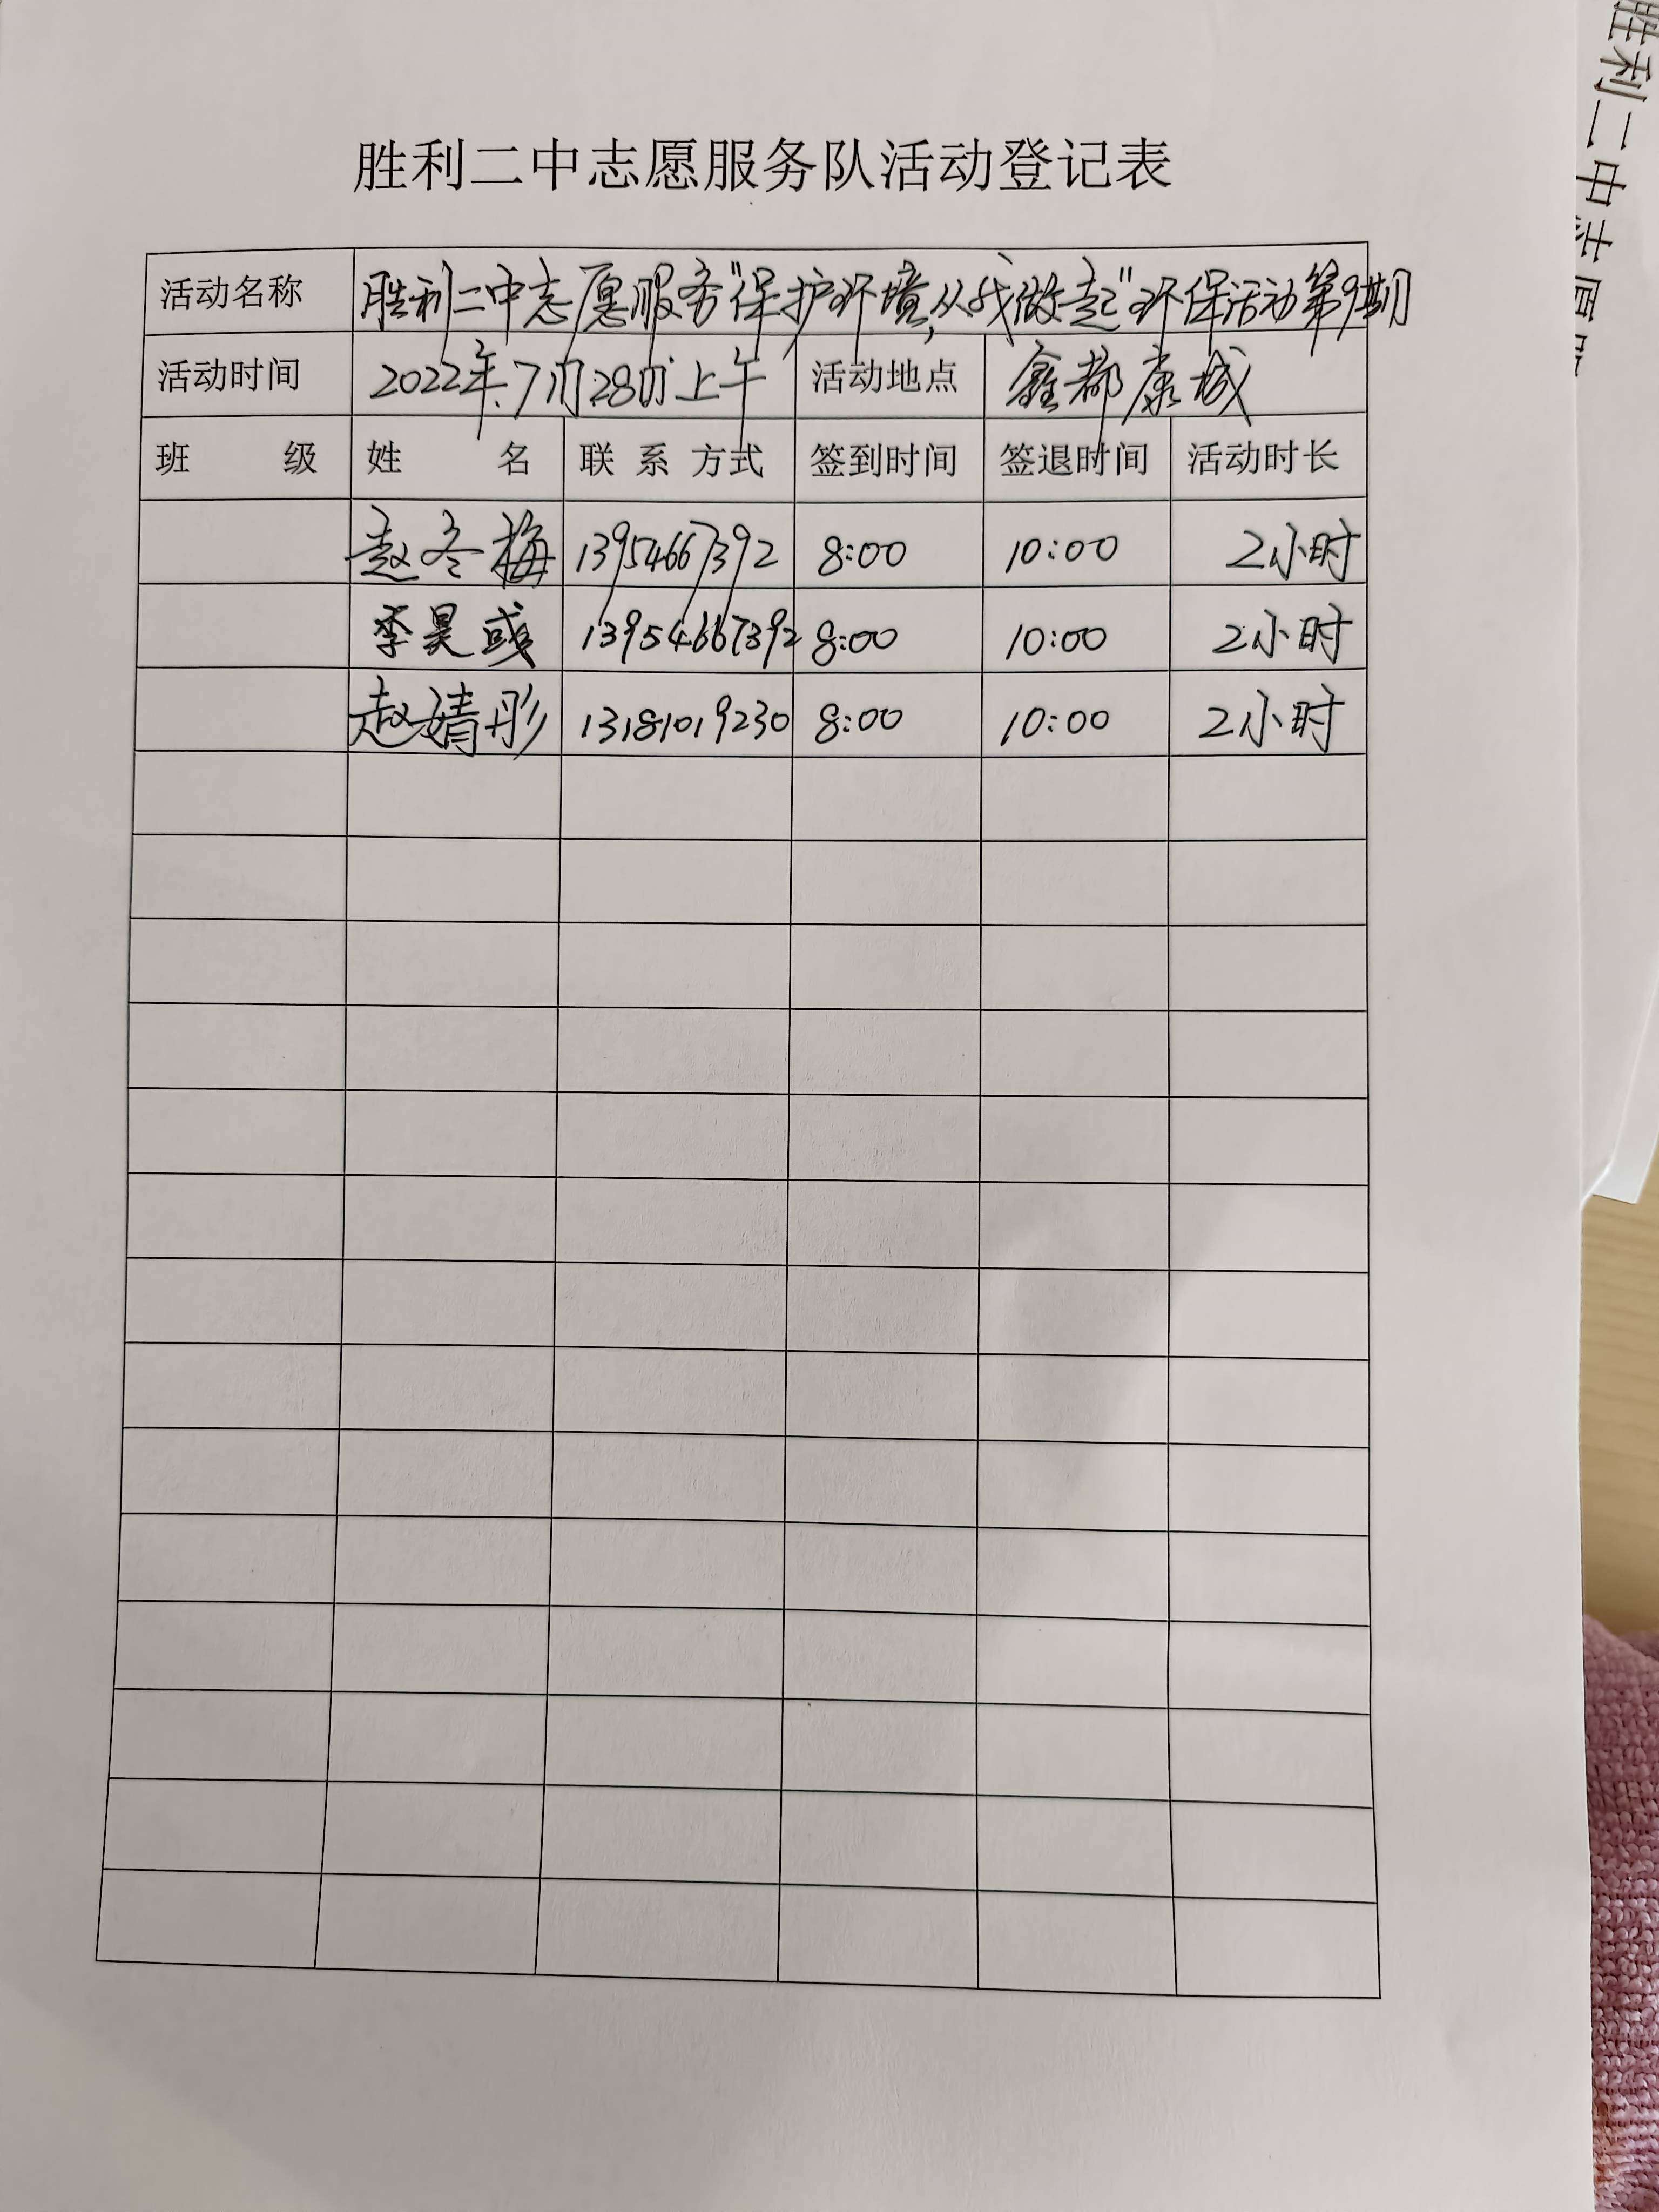 胜利二中志愿服务队活动登记表
活动名称 胜利二中志愿服务"保护环境,从我做起"环保活动第9期
活动时间 2022年.7月28日上午 活动地点 鑫都康城
班 级 姓 名 联 系 方式 签到时间 签退时间 活动时长
赵冬梅 13954667392 8:00 10:00 2小时
李昊彧 13954667392 8:00 10:00 2小时
赵婧彤 13181019230 8:00 10:00 2小时
胜利二中志愿